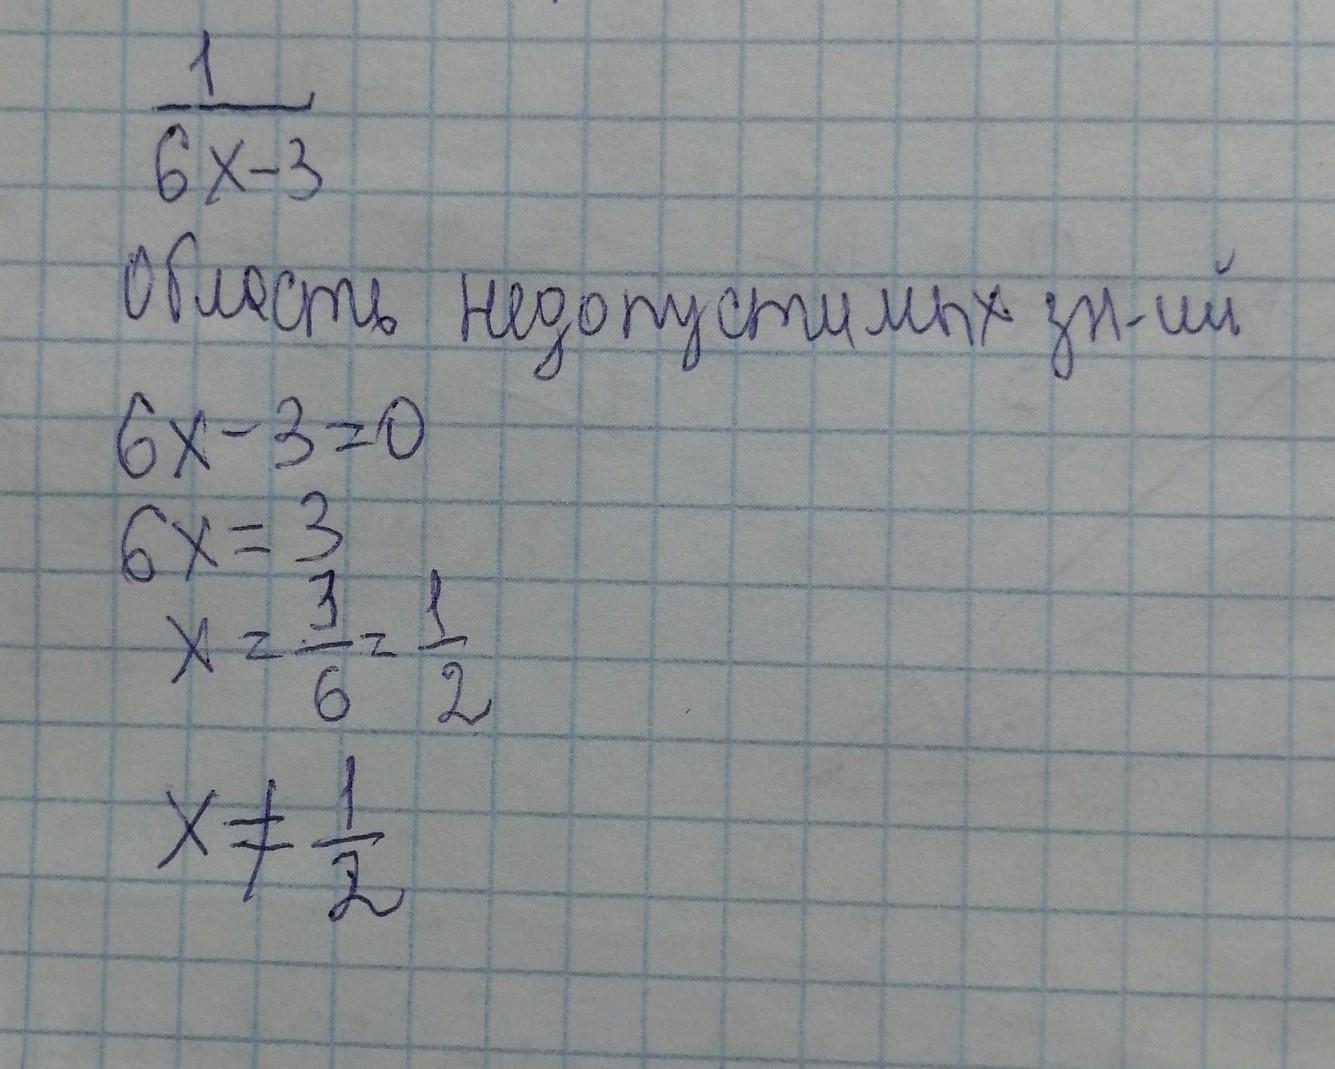 1
6x-3
Область недопустимых зн-ий
6x-3=0
6x=3
x = 3/6 = 1/2
x ≠ 1/2